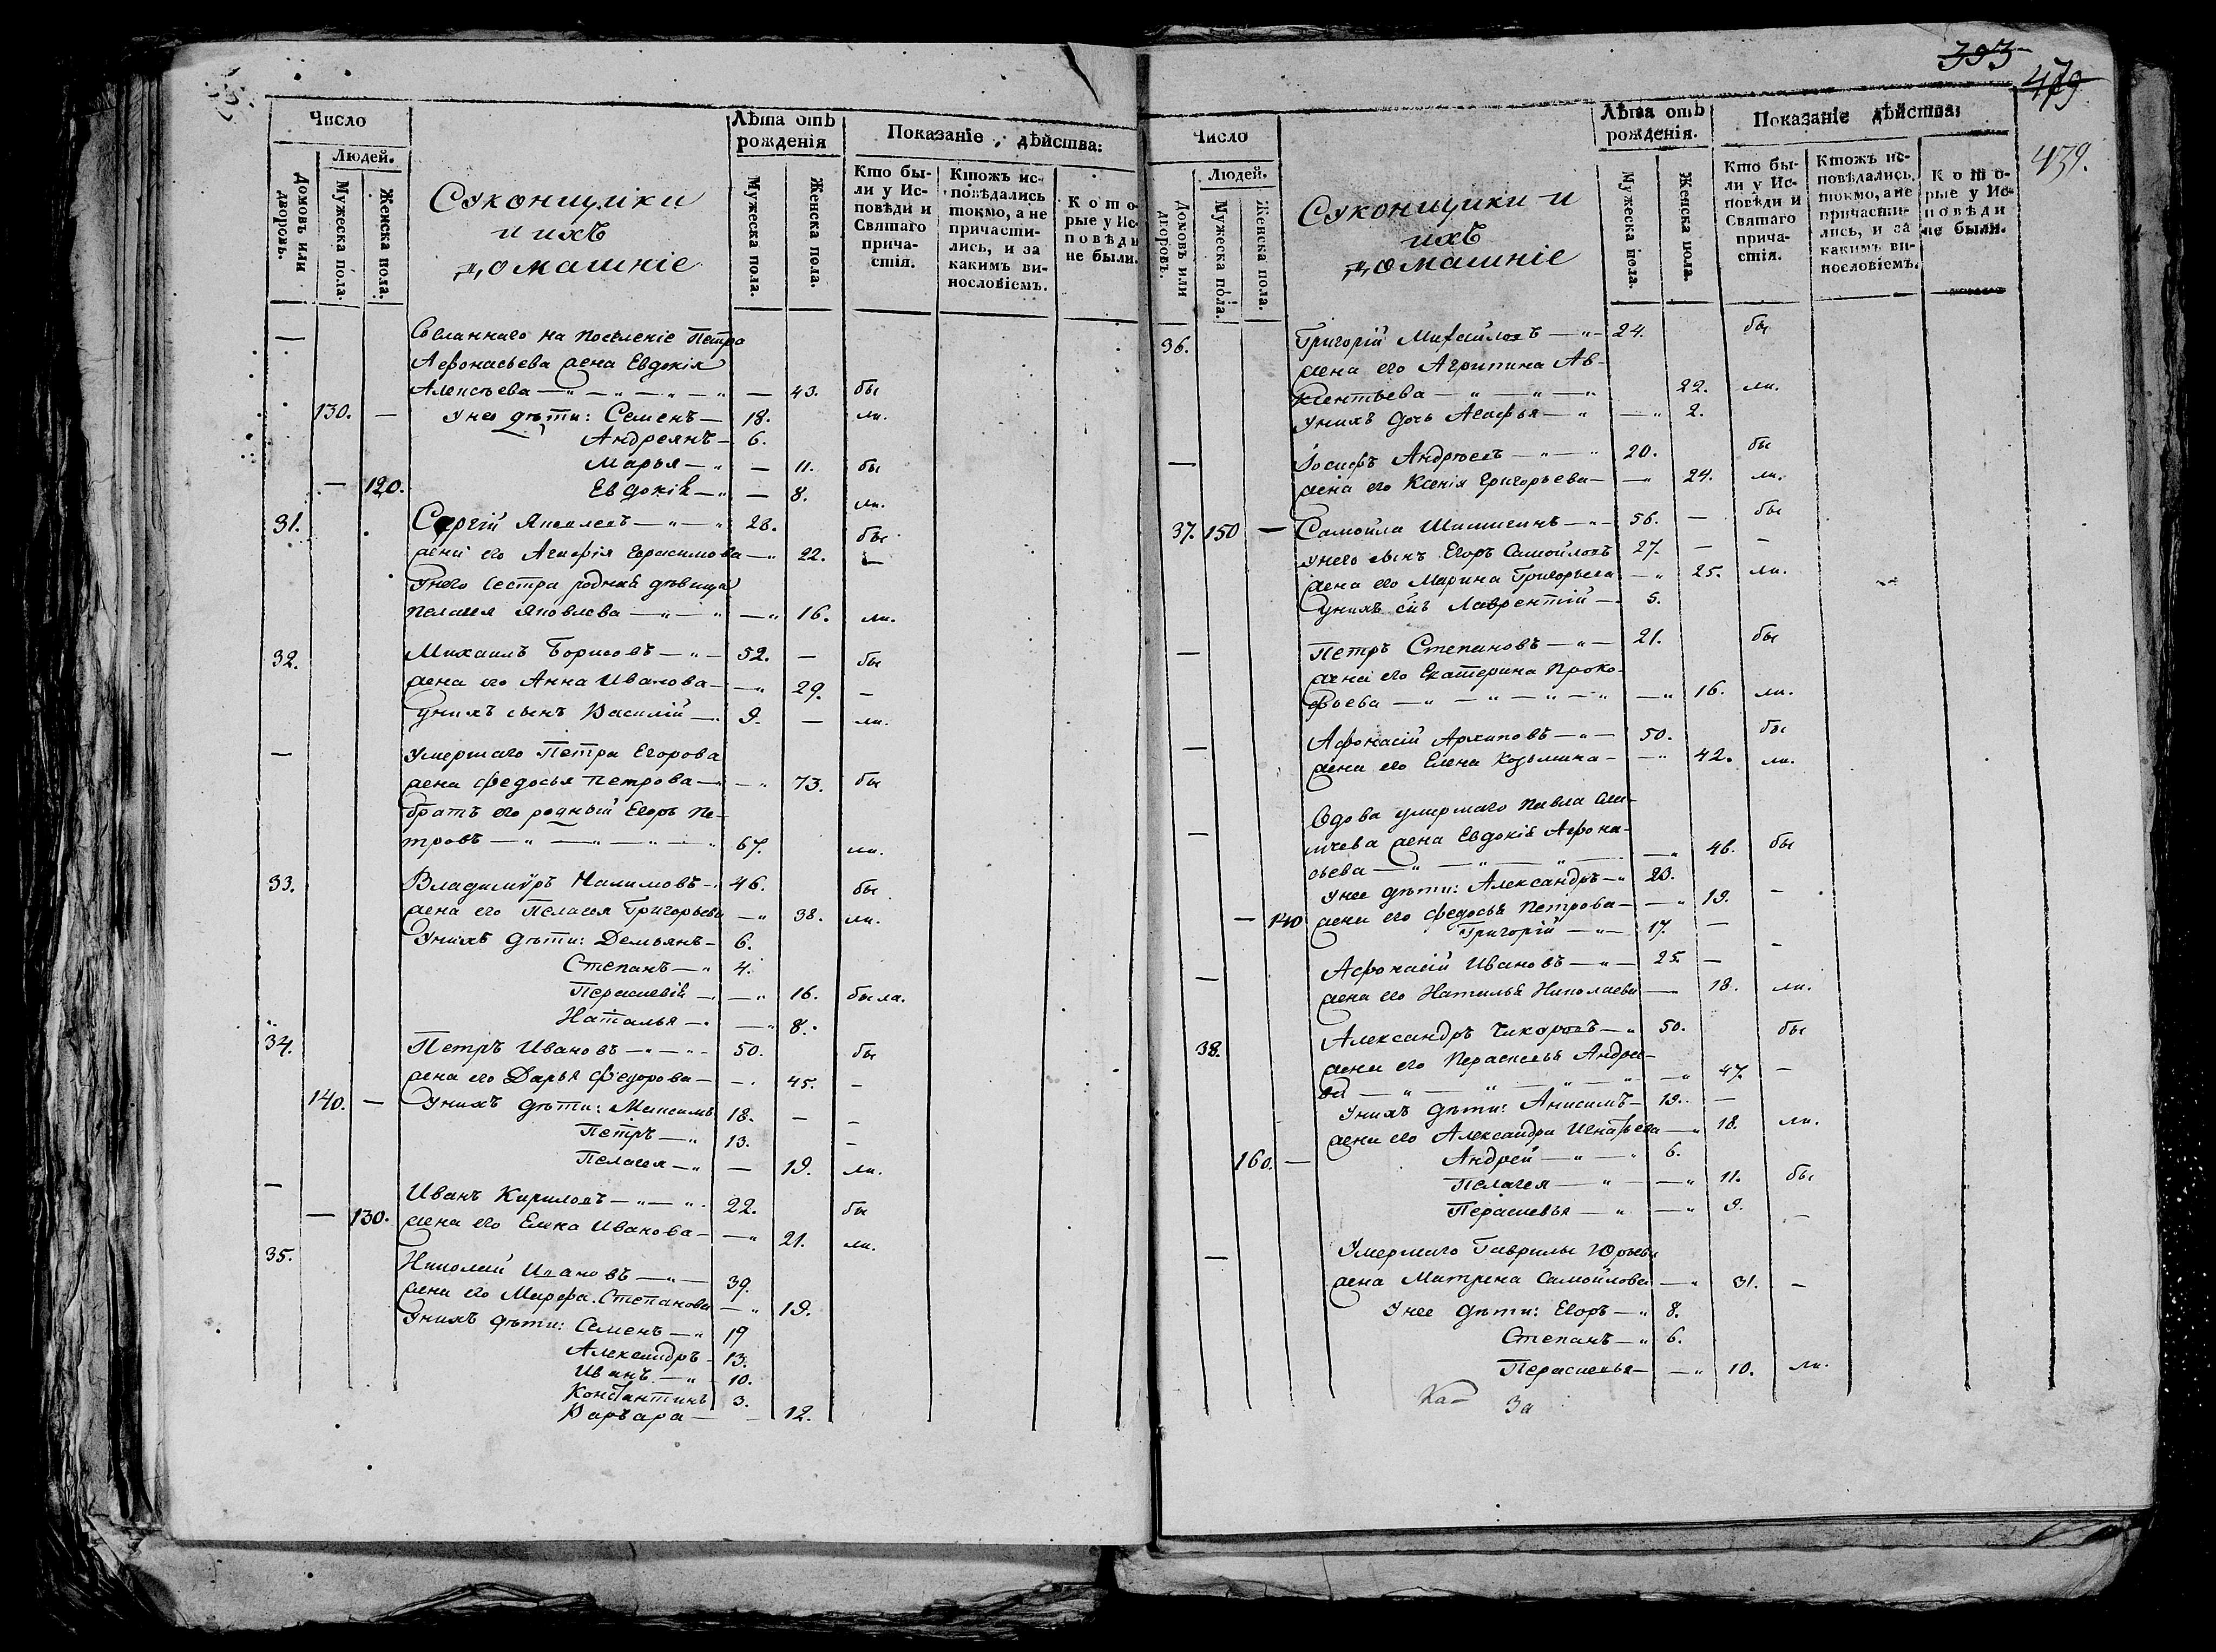 Число
Людей.
Домовъ или дворовъ.
Мужеска пола.
Женска пола.
Суконщики
и ихъ
домашніе
Лѣта отъ
рожденія
Мужеска пола.
Женска пола.
Показаніе дѣйства:
Кто бы-
ли у Ис-
повѣди и
Святаго
прича-
стія.
Ктожъ ис-
повѣдались
токмо, а не
причасти-
лись, и за
какимъ ви-
нословіемъ.
Кото-
рые у Ис-
повѣди
не были.
— Сосланнаго на поселеніе Петра
Афонасьева жена Евдокія
Алексѣева — 43. бы
130. — у нее дѣти: Семенъ — 18. ли.
Андреянъ — 6.
Марья — 11. бы
— 120. Евдокія — 8. ли.
31. Сергій Яковлевъ — 28. бы
жена его Агафія Герасимова — 22. —
У него сестра родная дѣвица
Пелагея Яковлева — 16. ли.
32. Михаилъ Борисовъ — 52. — бы
жена его Анна Иванова — 29. —
у нихъ сынъ Василій — 9. — ли.
— Умершаго Петра Егорова
жена Федосья Петрова — 73. бы
братъ его родный Егоръ Пе-
тровъ — 67. ли.
33. Владимиръ Налимовъ — 46. бы
жена его Пелагея Григорьева — 38. ли.
У нихъ дѣти: Демьянъ — 6.
Степанъ — 4.
Пераскевія — 16. была.
Наталья — 8.
34. Петръ Ивановъ — 50. бы
жена его Дарья Федорова — 45. —
140. — У нихъ дѣти: Максимъ 18. — —
Петръ — 13. —
Пелагея — 19. ли.
— Иванъ Кириловъ — 22. бы
— 130. жена его Елена Иванова — 21. ли.
35. Николай Ивановъ — 39.
жена его Марфа Степанова — 19.
У нихъ дѣти: Семенъ — 19
Александръ — 13.
Иванъ — 10.
Константинъ 3.
Варвара — 12.
393
479
439.
Число
Людей.
Домовъ или дворовъ.
Мужеска пола.
Женска пола.
Суконщики и
ихъ
домашніе
Лѣта отъ
рожденія.
Мужеска пола.
Женска пола.
Показаніе дѣйства:
Кто бы-
ли у Ис-
повѣди и
Святаго
прича-
стія.
Ктожъ ис-
повѣдались
токмо, а не
причасти-
лись, и за
какимъ ви-
нословіемъ.
Кото-
рые у Ис-
повѣди
не были.
36. Григорій Михайловъ — 24. бы
жена его Агрипина Ав-
ксентьева — 22. ли.
У нихъ дочь Агафья — 2.
— Іосифъ Андреевъ — 20. бы
жена его Ксенія Григорьева — 24. ли.
37. 150 — Самойла Шишигинъ — 56. — бы
у него сынъ Егоръ Самойловъ 27. — —
жена его Марина Григорьева — 25. ли.
у нихъ сынъ Лаврентій — 5.
— Петръ Степановъ — 21. бы
жена его Екатерина Проко-
фьева — 16. ли.
— Афонасій Архиповъ — 50. бы
жена его Елена Козьмина — 42. ли.
— Вдова умершаго Павла
жена Евдокія Афона-
сьева — 46. бы
У нее дѣти: Александръ — 20.
— 140 жена его Федосья Петрова — 19. —
Григорій — 17. —
— Афонасій Ивановъ — 25. — —
жена его Наталья Николаева — 18. ли.
38. Александръ Чикаровъ — 50. бы
жена его Пераскевья Андрее-
ва — 47. —
У нихъ дѣти: Анисимъ — 19. —
жена его Александра Игнатьева — 18. ли.
160. — Андрей — 6.
Пелагея — 11. бы
Пераскевья — 9. —
— Умершаго Гаврилы Юрьева
жена Матрена Самойлова — 31. —
У нее дѣти: Егоръ — 8.
Степанъ — 6.
Пераскевья — 10. ли.
Ка-
За